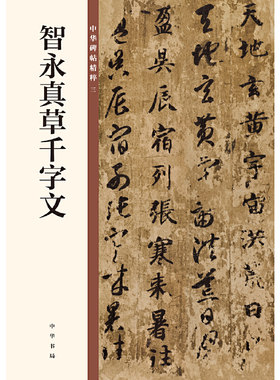 中华碑帖精粹 三
智永真草千字文
中华书局
天地玄黄宇宙洪荒日
天地玄黄宇宙洪荒日
盈昃辰宿列張寒来暑往
盈昃辰宿列張寒来暑